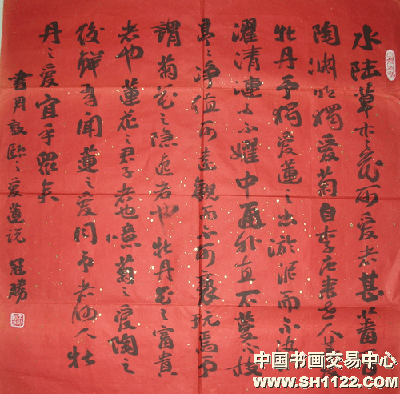 水陆草木之花可爱者甚蕃晋
陶渊明獨爱菊自李唐来世人甚爱
牡丹予獨爱蓮之出淤泥而不染
濯清漣而不中通外直不蔓不枝
亭之净植可遠觀而不可褻玩焉予
謂菊花之隐逸者也牡丹花之富貴
者也蓮花之君子者也噫菊之爱陶之
後鲜有聞蓮之爱同予者何人牡
丹之爱宜乎眾矣
書周敦颐之爱蓮说 冠勝
中国书画交易中心
www.SH1122.com